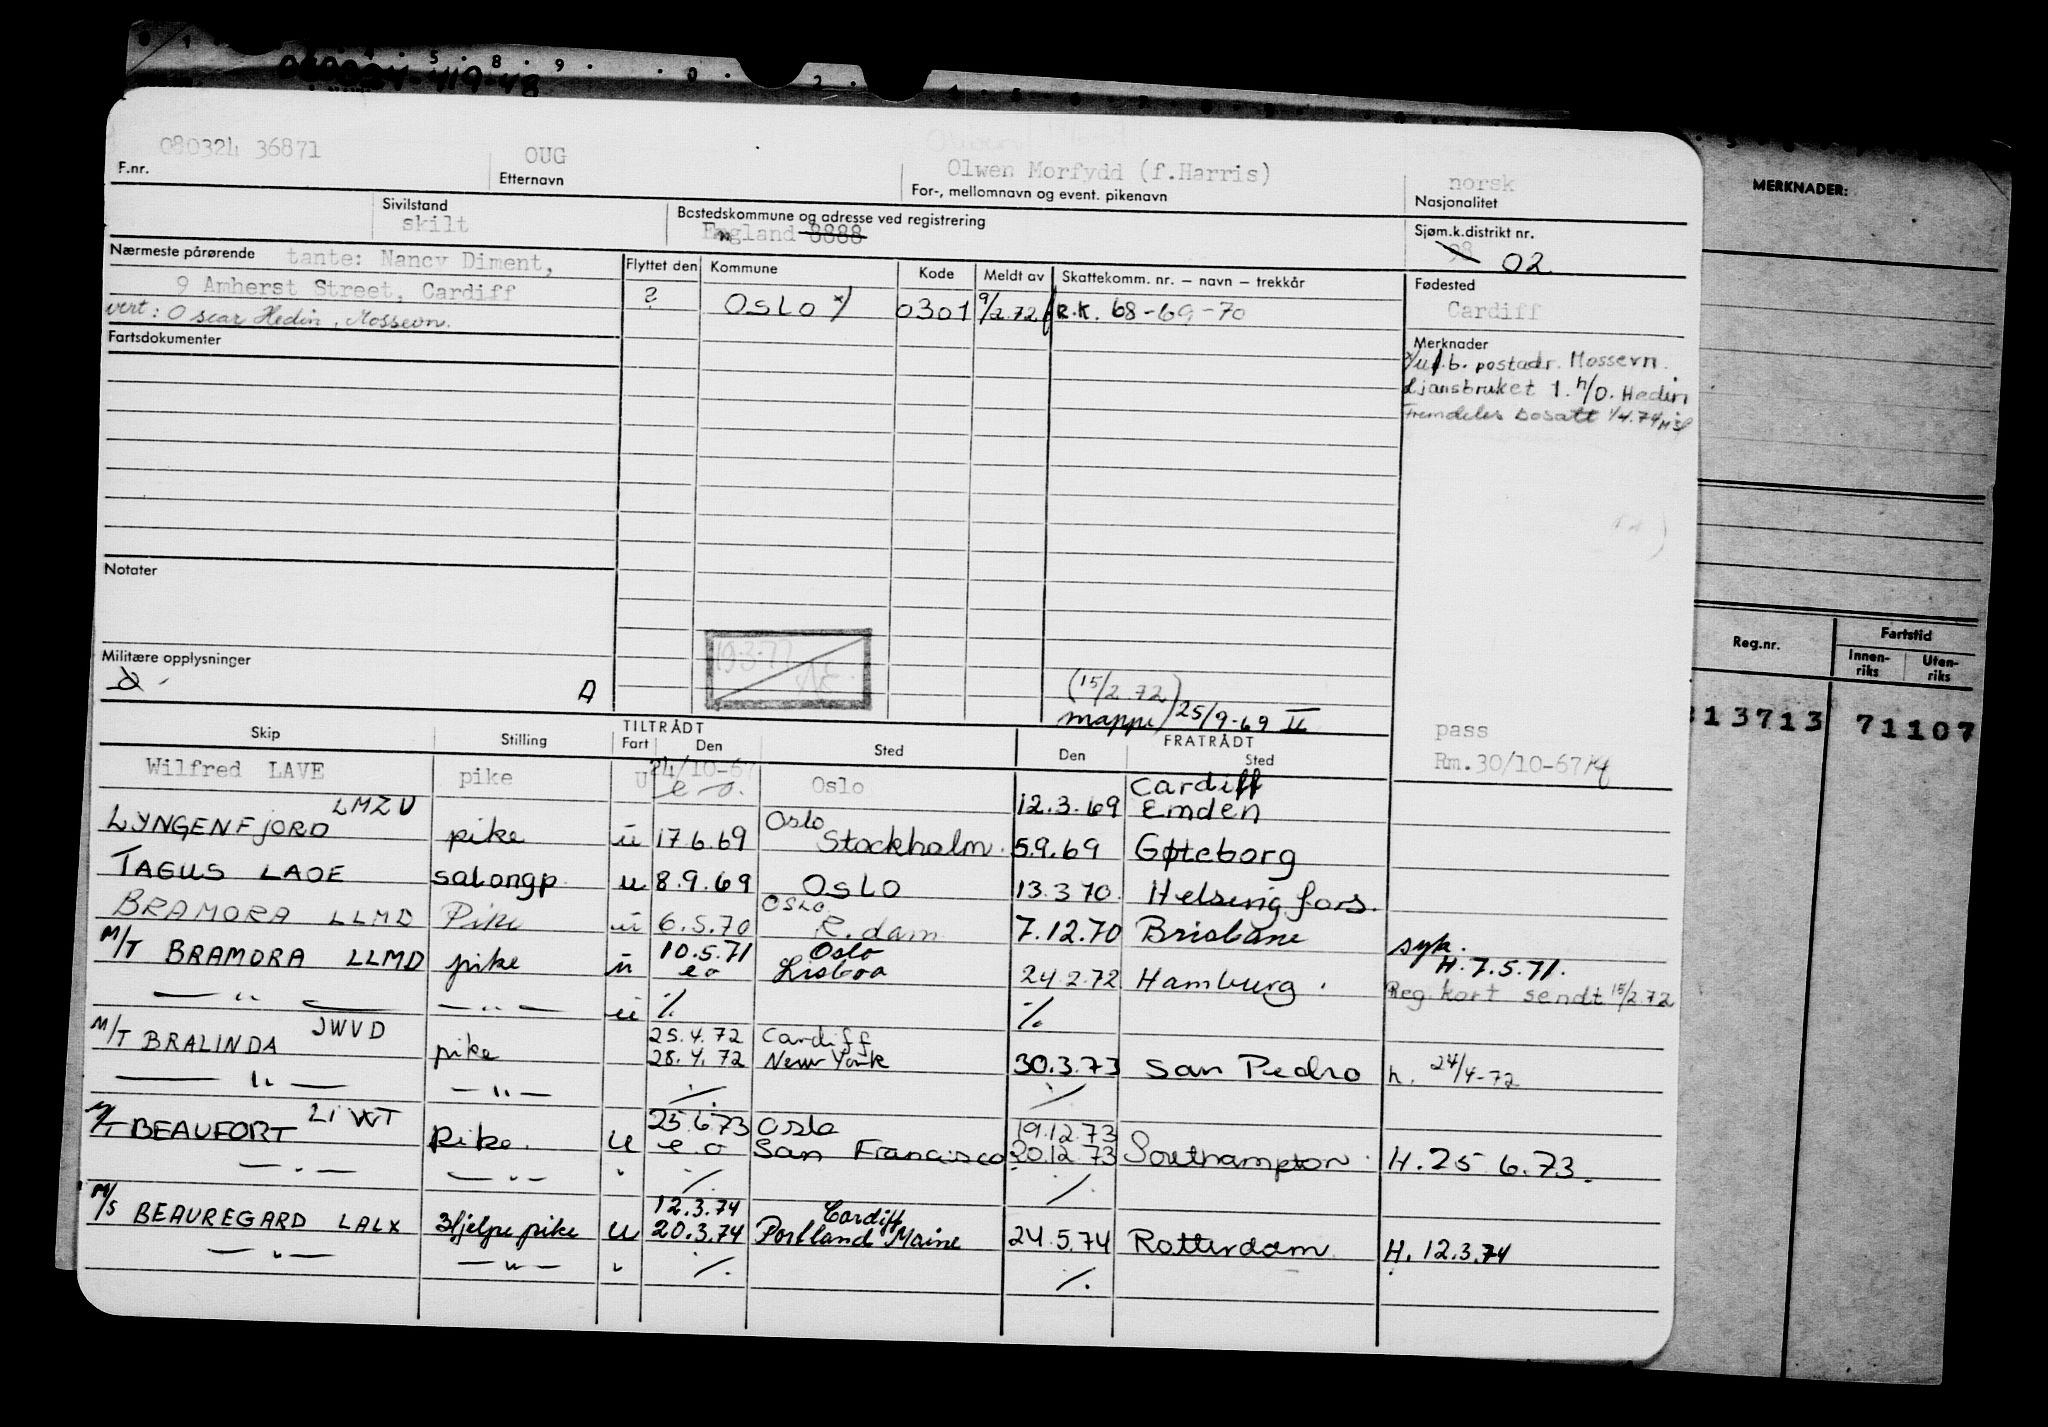 080324 36871
F.nr.
OUG
Etternavn
Olwen Morfydd (f.Harris)
For-, mellomnavn og event. pikenavn
norsk
Nasjonalitet
Sivilstand
skilt
Bostedskommune og adresse ved registrering
England 8888
Sjøm.k.distrikt nr.
02
Nærmeste pårørende tante: Nancy Diment,
9 Amherst Street, Cardiff
vert: Oscar Hedin, Mossevn.
Flyttet den
Kommune
Kode
Meldt av
Skattekomm. nr. – navn – trekkår
?
OSLO x)
0301
9/2.72
R.K. 68-69-70
Fødested
Cardiff
Merknader
postadr. Mossevn.
Ljansbruket 1. Hedin
Fremdeles bosatt 1/4.74
Fartsdokumenter
Notater
Militære opplysninger
A
19.3.77
(15/2.72)
mappe 25/9-69 II
MERKNADER:
Reg.nr.
Fartstid
Innen-
riks
Uten-
riks
13713 71107
Skip
Stilling
TILTRÅDT
Fart
Den
Sted
FRATRÅDT
Den
Sted
pass
Rm.30/10-67
Wilfred LAVE pike U 24/10-67 e o. Oslo 12.3.69 Cardiff Emden
LYNGENFJORD LMZU pike u 17.6.69 Oslo Stockholm. 5.9.69 Gøteborg
TAGUS LAOE salongp u 8.9.69 OSLO 13.3.70. Helsingfors.
BRAMORA LLMD Pike u 6.5.70 Oslo R.dam 7.12.70 Brisbane syk.
M/T BRAMORA LLMD pike u 10.5.71 e o Oslo Lisboa 24.2.72 Hamburg. H.7.5.71.
— " — — " — u %. %. Reg.kort sendt 15/2.72
M/T BRALINDA JWVD pike 25.4.72 28.4.72 Cardiff New York 30.3.73 San Pedro h. 24/4-72
— " — — " — %. %.
M/T BEAUFORT pike. U 25.6.73 e o Oslo San Francisco 19.12.73 20.12.73 Southampton. H.25 6.73.
— " — — " — " %. %.
M/S BEAUREGARD LALX hjelpepike U 12.3.74 20.3.74 Cardiff Portland Maine 24.5.74 Rotterdam H. 12.3.74
— " — — " — " %. %.